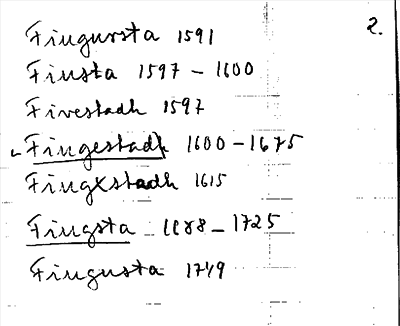 2.
Fingursta 1591
Finsta 1597 - 1600
Fivestadh 1597
Fingestadh 1600 - 1675
Fingxstadh 1615
Fingsta 1688 - 1725
Fingusta 1749